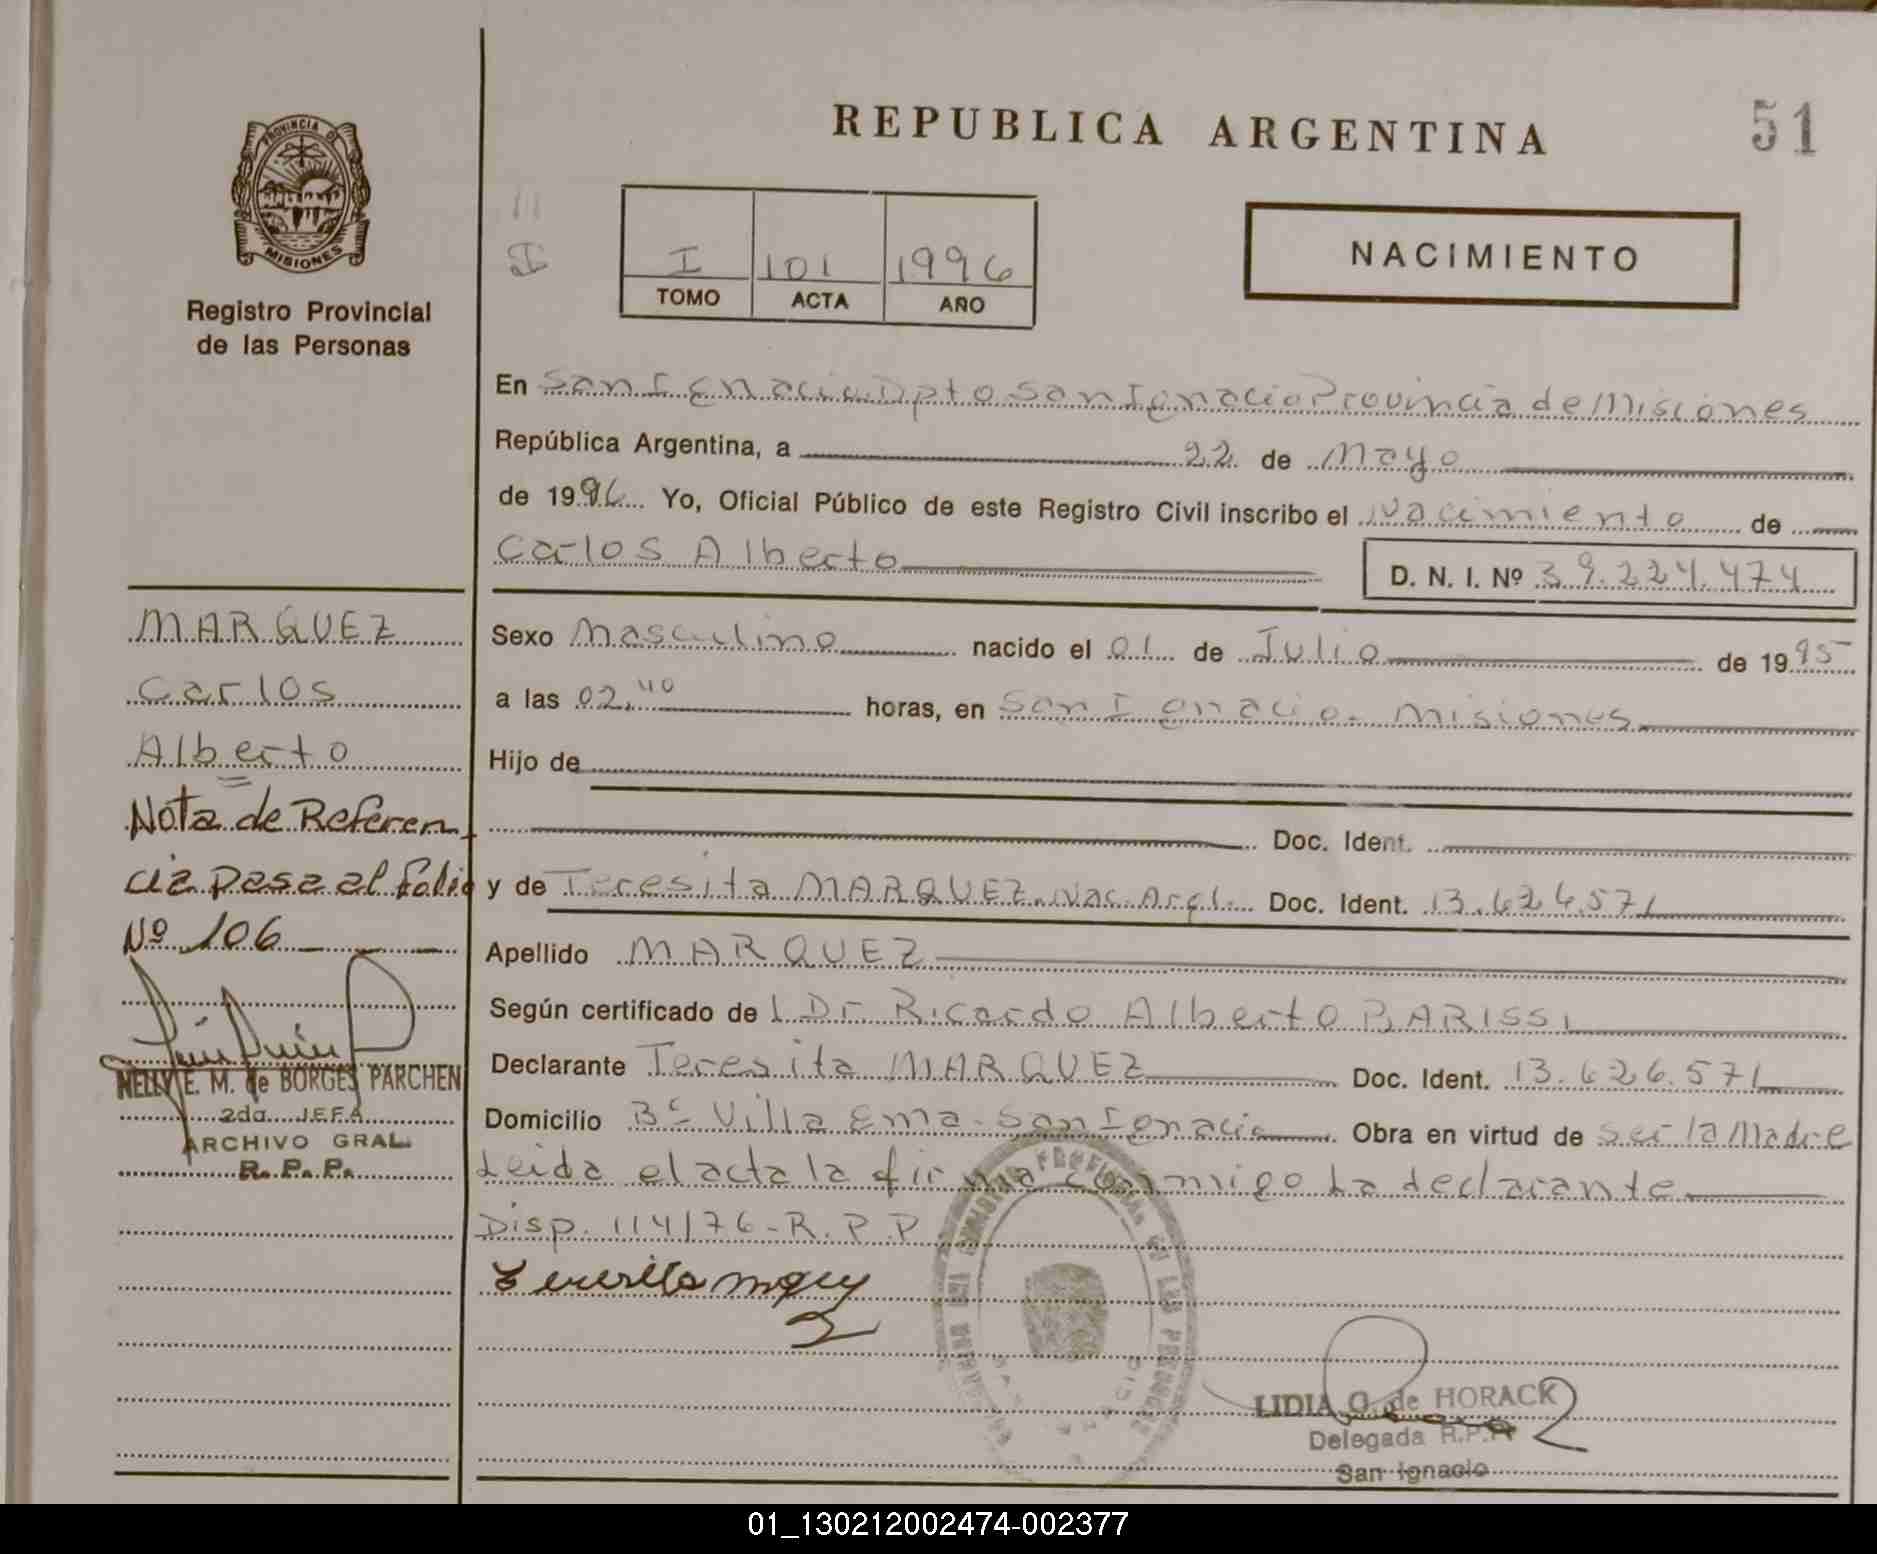 REPUBLICA ARGENTINA
51
PROVINCIA DE
MISIONES
Registro Provincial
de las Personas
I 101 1996
TOMO ACTA AÑO
NACIMIENTO
En San Ignacio Dpto San Ignacio Provincia de Misiones
República Argentina, a 22 de Mayo
de 1996 Yo, Oficial Público de este Registro Civil inscribo el Nacimiento de
Carlos Alberto
D. N. I. Nº 39.224.474
MARQUEZ
Carlos
Alberto
Nota de Referen
cia pasa al folio
Nº 106
NELLY E. M. de BORGES PARCHEN
2da. JEFA
ARCHIVO GRAL.
R. P. P.
Sexo Masculino nacido el 01 de Julio de 1995
a las 02,40 horas, en San Ignacio - Misiones
Hijo de
Doc. Ident.
y de Teresita MARQUEZ. Nac. Arg. Doc. Ident. 13.626.571
Apellido MARQUEZ
Según certificado de l Dr Ricardo Alberto BARISSI
Declarante Teresita MARQUEZ Doc. Ident. 13.626.571
Domicilio Bº Villa Ema - San Ignacio Obra en virtud de Ser la Madre
Leida el acta la firma conmigo La declarante
Disp. 114/76 - R. P. P
LIDIA O. de HORACK
Delegada R.P.P.
San Ignacio
01_130212002474-002377